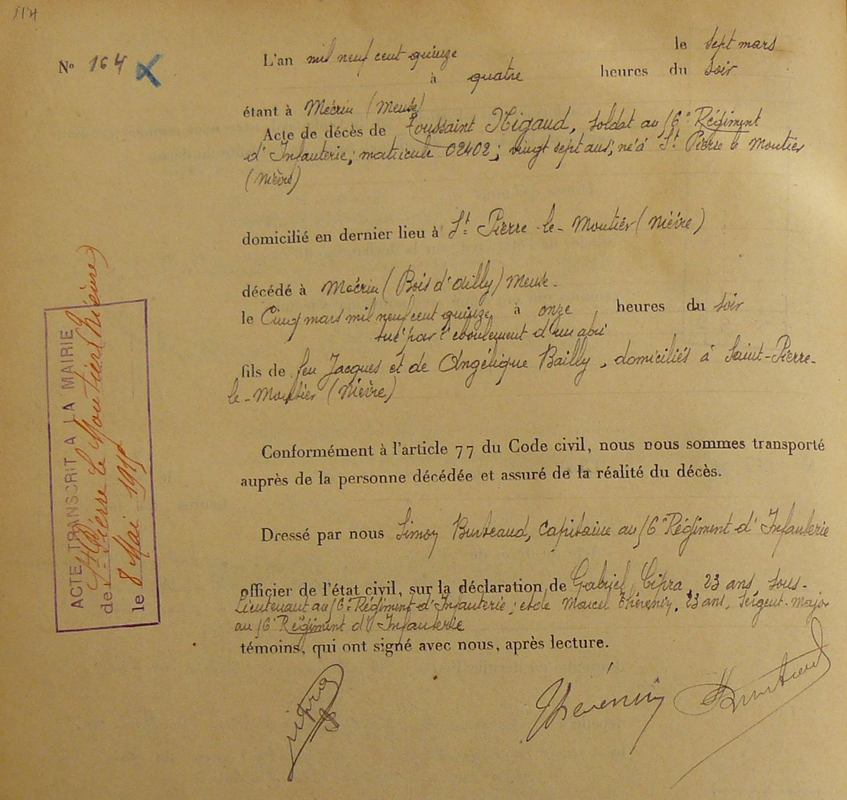 N° 164
L'an mil neuf cent quinze le sept mars
à quatre heures du soir
étant à Mécrin (Meuse)
Acte de décès de Toussaint Nigaud, soldat au 16e Régiment
d'Infanterie; matricule 02402; vingt sept ans; né à St Pierre le Moutier
(Nièvre)
domicilié en dernier lieu à St Pierre-le-Moutier (Nièvre)
décédé à Mécrin (Bois d'Ailly) Meuse.
le Cinq mars mil neuf cent quinze à onze heures du soir
tué par l'éboulement d'un abri
fils de feu Jacques et de Angélique Bailly, domiciliés à Saint-Pierre-
le-Moutier (Nièvre)
Conformément à l'article 77 du Code civil, nous nous sommes transporté
auprès de la personne décédée et assuré de la réalité du décès.
Dressé par nous Simon Burteaud, Capitaine au 16e Régiment d'Infanterie
officier de l'état civil, sur la déclaration de Gabriel Cipra, 23 ans, Sous-
Lieutenant au 16e Régiment d'Infanterie; et de Marcel Thévenin, 23 ans, Sergent-Major
au 16e Régiment d'Infanterie
témoins, qui ont signé avec nous, après lecture.
Thévenin Burteaud
ACTE TRANSCRIT A LA MAIRIE
de St Pierre le Moutier (Nièvre)
le 8 Mai 1915